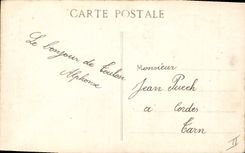 CARTE POSTALE
Le bonjour de Toulon
Alphonse
Monsieur
Jean Puech
a Cordes
Tarn
II